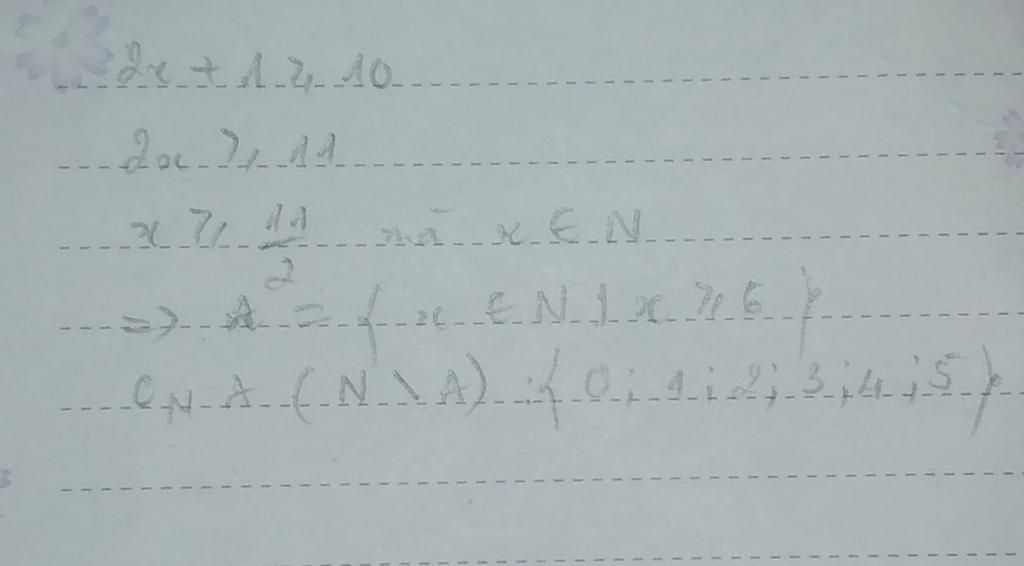 2x + 1 ⩾ 10
2x ⩾ 11
x ⩾ 11/2 mà x ∈ N
=> A = { x ∈ N | x ⩾ 6 }
C_N A (N \ A) : { 0 ; 1 ; 2 ; 3 ; 4 ; 5 }